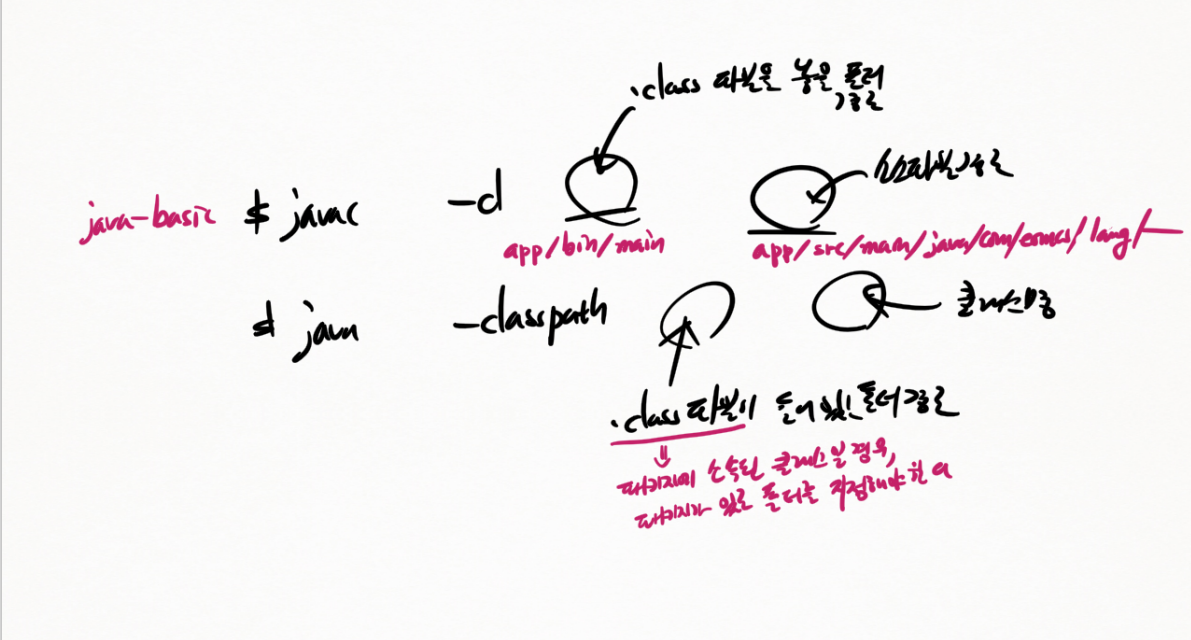 .class 파일을 놓을 폴더
경로
소스파일 경로
java-basic $ javac -d
app/bin/main app/src/main/java/com/eomcs/lang/
$ java -classpath
클래스명
.class 파일이 들어 있는 폴더 경로
⇓
패키지에 소속된 클래스일 경우,
패키지가 있는 폴더를 지정해야 한다